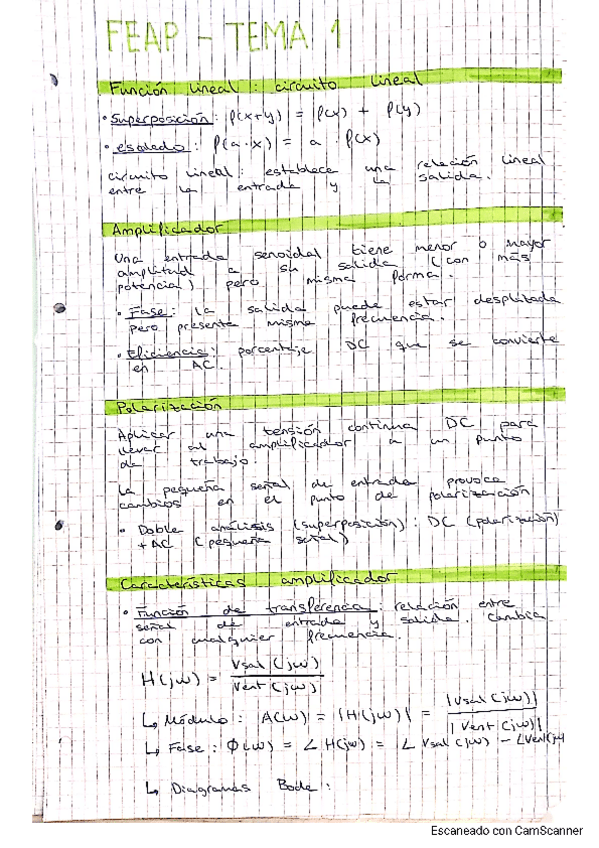 FEAP - TEMA 1
Función lineal : circuito lineal
• Superposición : f(x+y) = f(x) + f(y)
• escalado : f(a·x) = a · f(x)
circuito lineal : establece una relación lineal
entre la entrada y la salida.
Amplificador
Una entrada senoidal tiene menor o mayor
amplitud a su salida (con más
potencia) pero misma forma.
• Fase : la salida puede estar desplazada
pero presenta misma frecuencia.
• Eficiencia : porcentaje DC que se convierte
en AC.
Polarización
Aplicar una tensión continua DC para
llevar al amplificador a un punto
de trabajo.
La pequeña señal de entrada provoca
cambios en el punto de polarización
• Doble análisis (superposición) : DC (polarización)
+ AC (pequeña señal)
Características amplificador
• Función de transferencia : relación entre
señal de entrada y salida. Cambia
con cualquier frecuencia.
H(jω) = Vsal(jω) / Vent(jω)
↳ Módulo : A(ω) = |H(jω)| = |Vsal(jω)| / |Vent(jω)|
↳ Fase : Φ(ω) = ∠H(jω) = ∠Vsal(jω) - ∠Vent(jω
↳ Diagramas Bode :
Escaneado con CamScanner